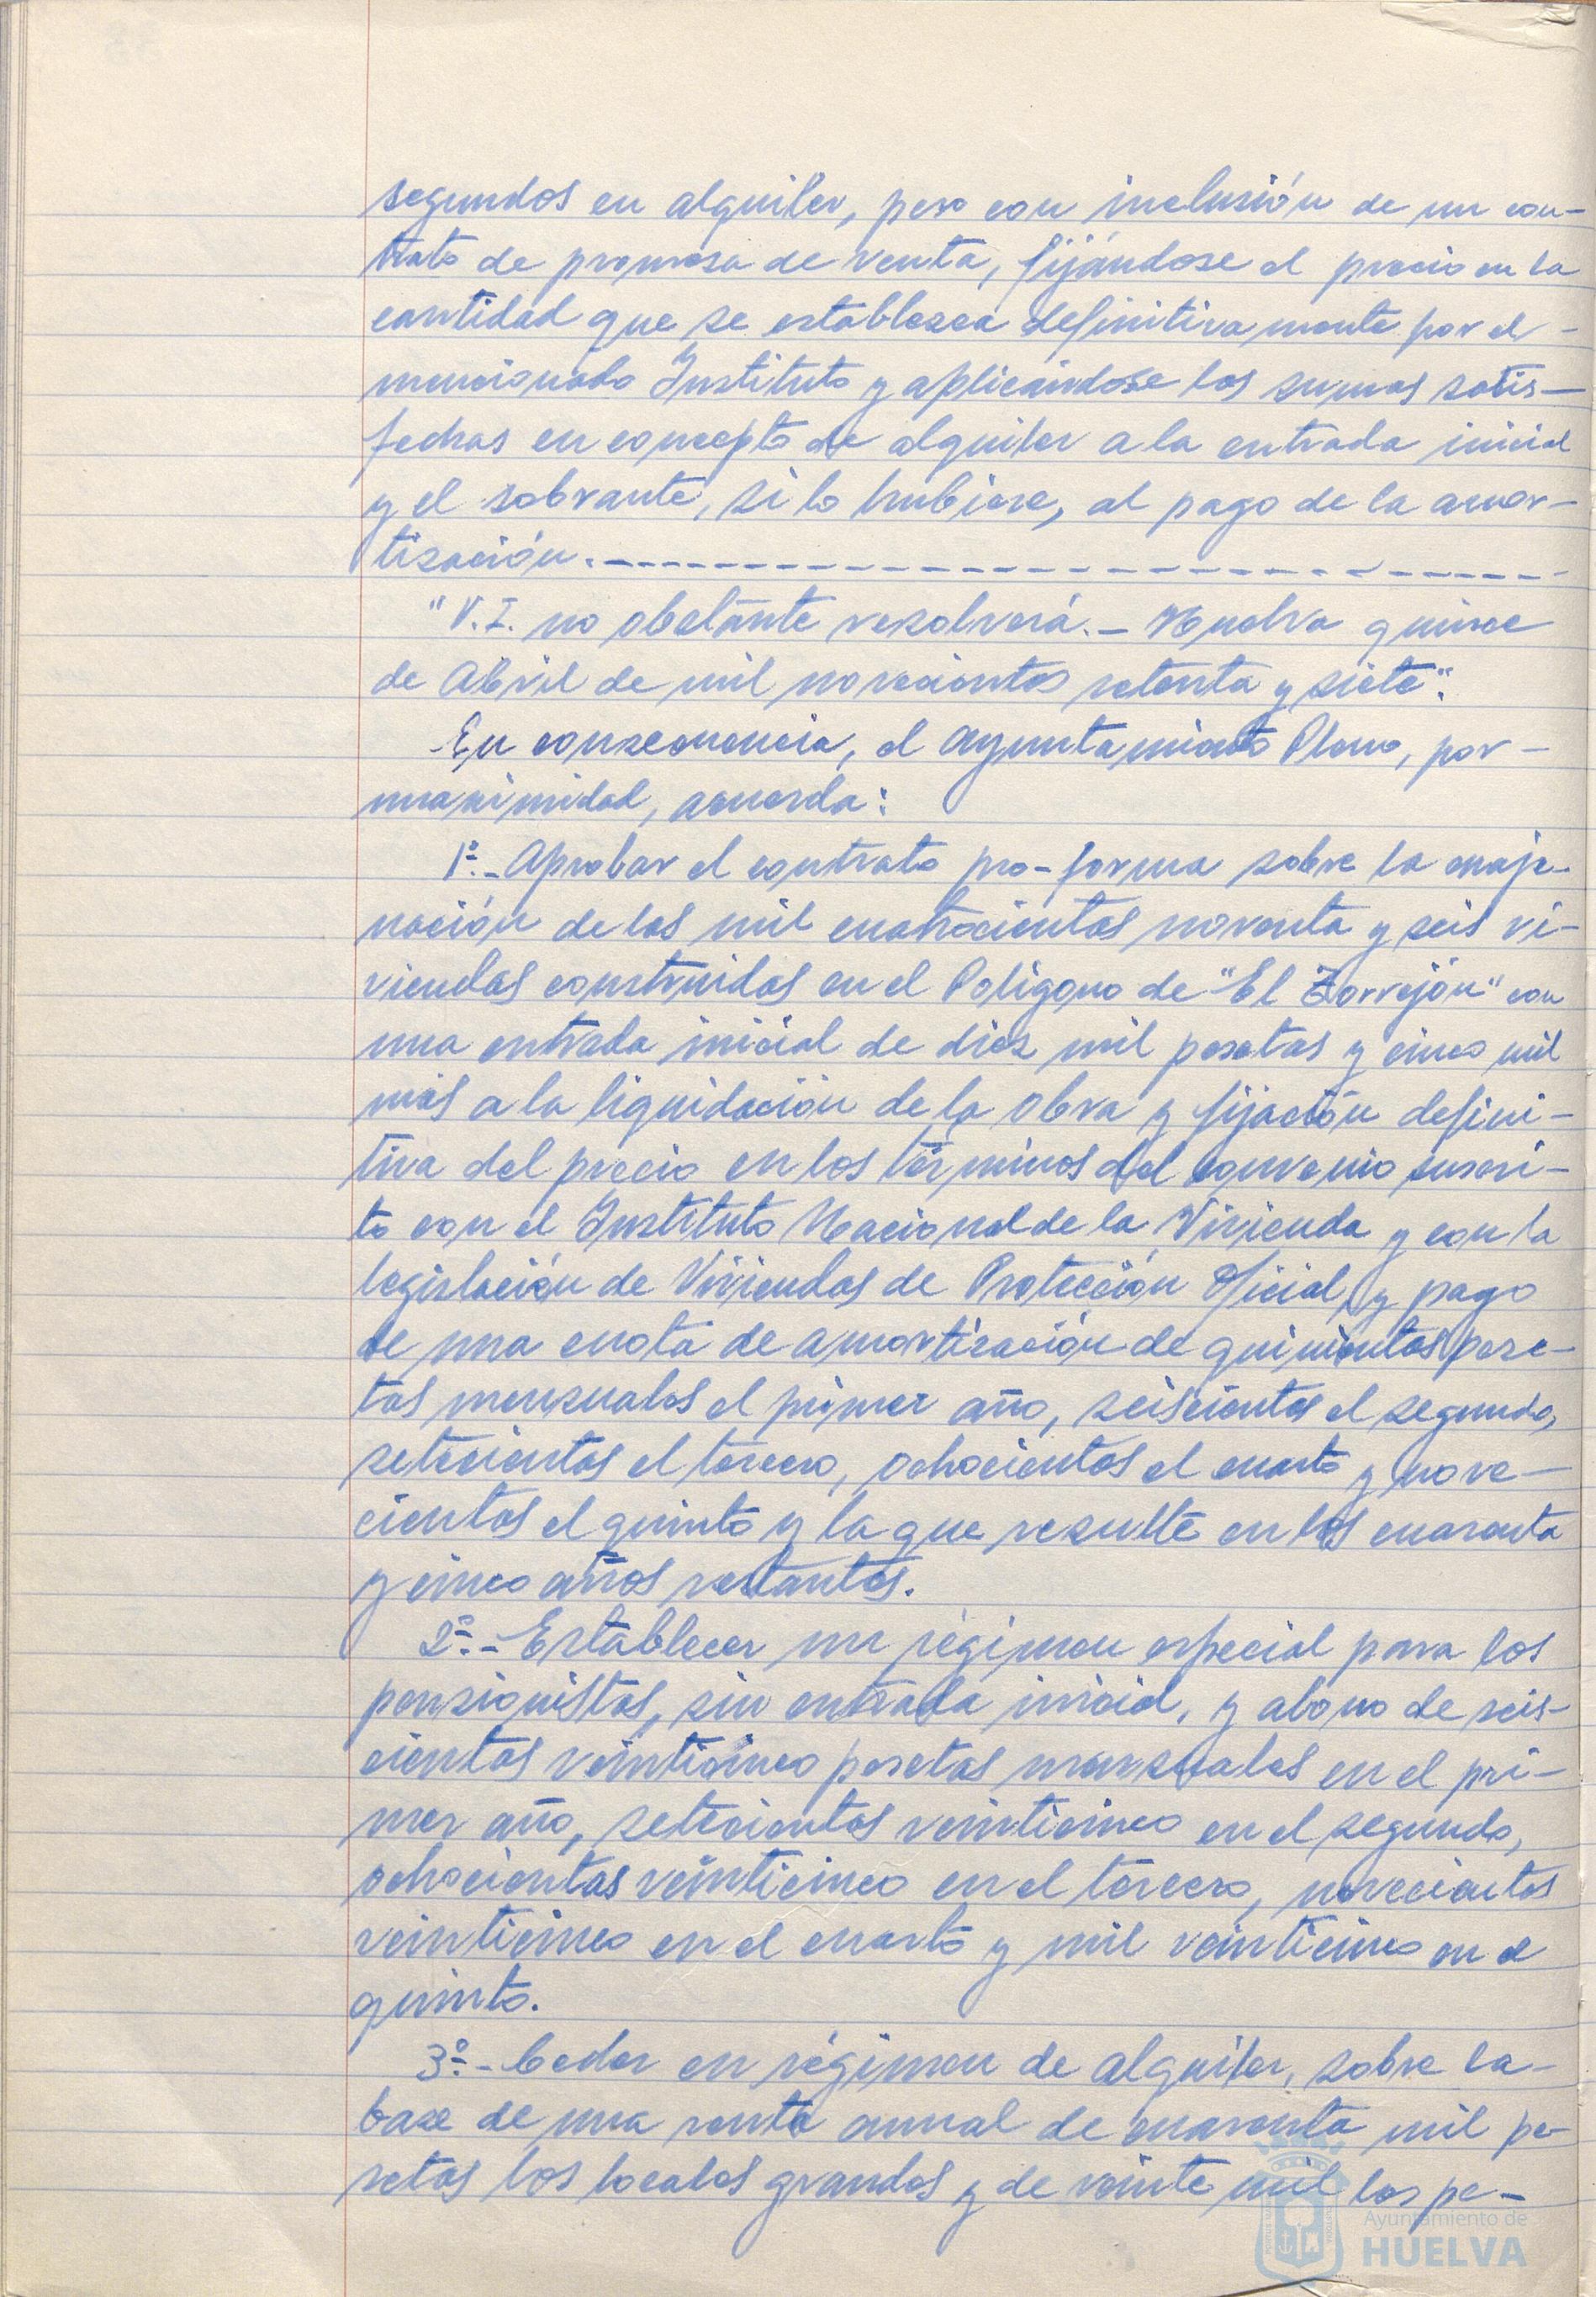 segundos en alquiler, pero con inclusión de un con-
trato de promesa de venta, fijándose el precio en la
cantidad que se establezca definitivamente por el -
mencionado Instituto y aplicándose las sumas satis-
fechas en concepto de alquiler a la entrada inicial
y el sobrante, si lo hubiere, al pago de la amor-
tización.- - - - - - - - - - - - - - - - - - - - - - -
"V.I. no obstante resolverá.- Huelva quince
de Abril de mil novecientos setenta y siete".
En consecuencia, el Ayuntamiento Pleno, por -
unanimidad, acuerda:
1º.- Aprobar el contrato pro-forma sobre la enaje-
nación de las mil cuatrocientas noventa y seis vi-
viendas construidas en el Polígono de "El Torrejón" con
una entrada inicial de diez mil pesetas y cinco mil
más a la liquidación de la obra y fijación defini-
tiva del precio en los términos del convenio suscri-
to con el Instituto Nacional de la Vivienda y con la
legislación de Viviendas de Protección Oficial, y pago
de una cuota de amortización de quinientas pese-
tas mensuales el primer año, seiscientas el segundo,
setecientas el tercero, ochocientas el cuarto y nove-
cientas el quinto y la que resulte en los cuarenta
y cinco años restantes.
2º.- Establecer un régimen especial para los
pensionistas, sin entrada inicial, y abono de seis-
cientas veinticinco pesetas mensuales en el pri-
mer año, setecientas veinticinco en el segundo,
ochocientas veinticinco en el tercero, novecientas
veinticinco en el cuarto y mil veinticinco en el
quinto.
3º.- Ceder en régimen de alquiler, sobre la -
base de una renta anual de cuarenta mil pe-
setas los locales grandes y de veinte mil los pe-
Ayuntamiento de
HUELVA